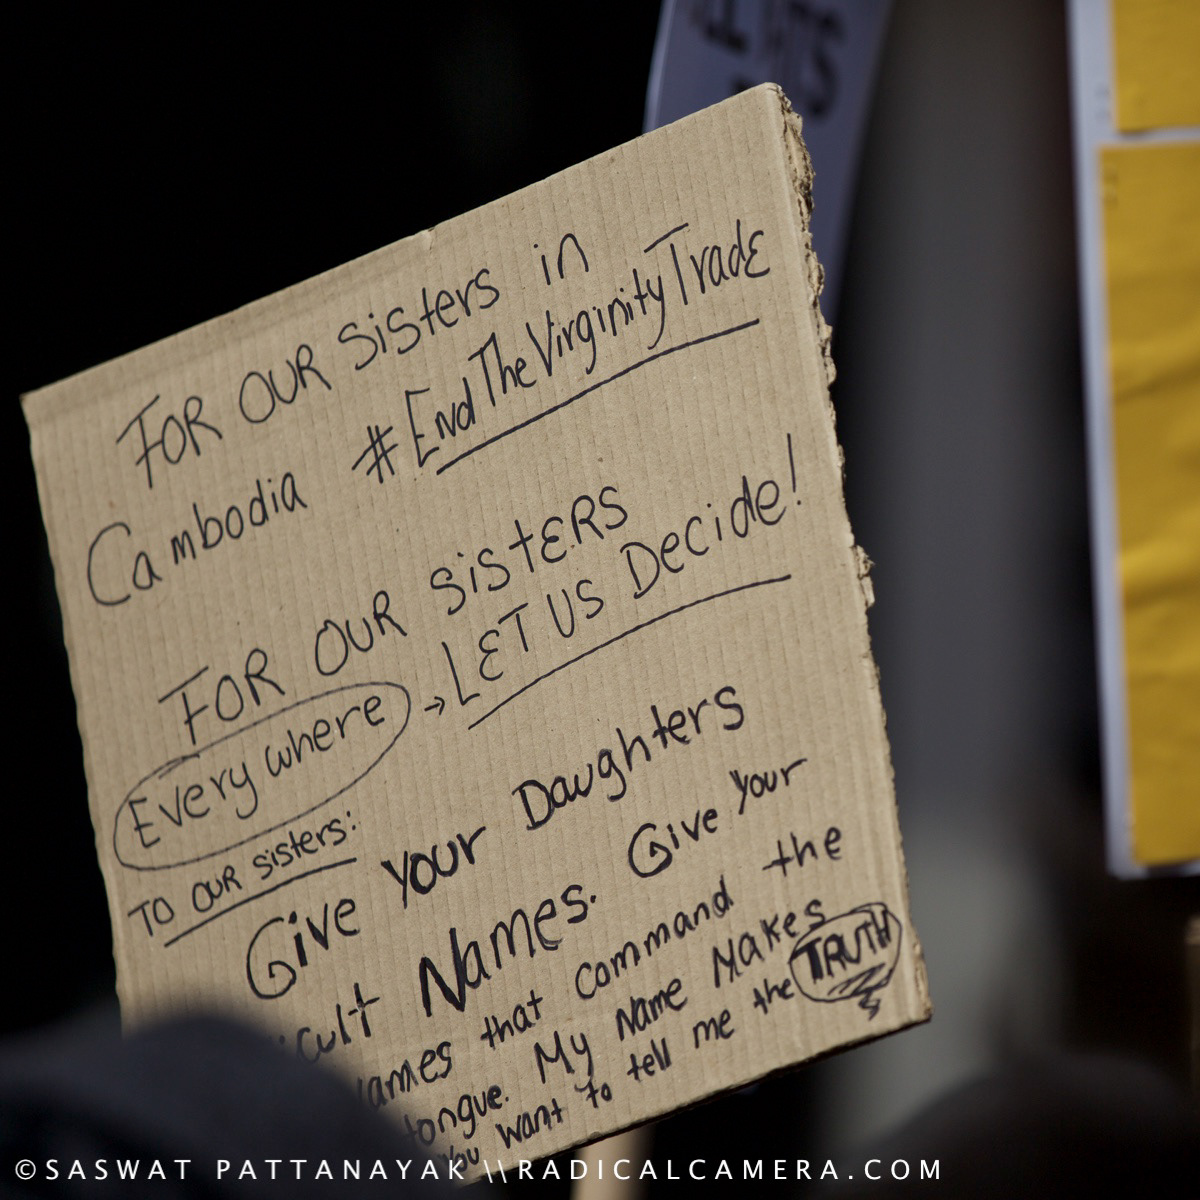 FOR OUR sisters in
Cambodia #EndTheVirginityTrade
FOR OUR SiStERS
Everywhere → LET US Decide!
TO OUR sisters:
Give your Daughters
Names. Give your
that command the
tongue. My Name Makes
you want to tell me the TRUTH
©SASWAT PATTANAYAK \\ RADICALCAMERA.COM